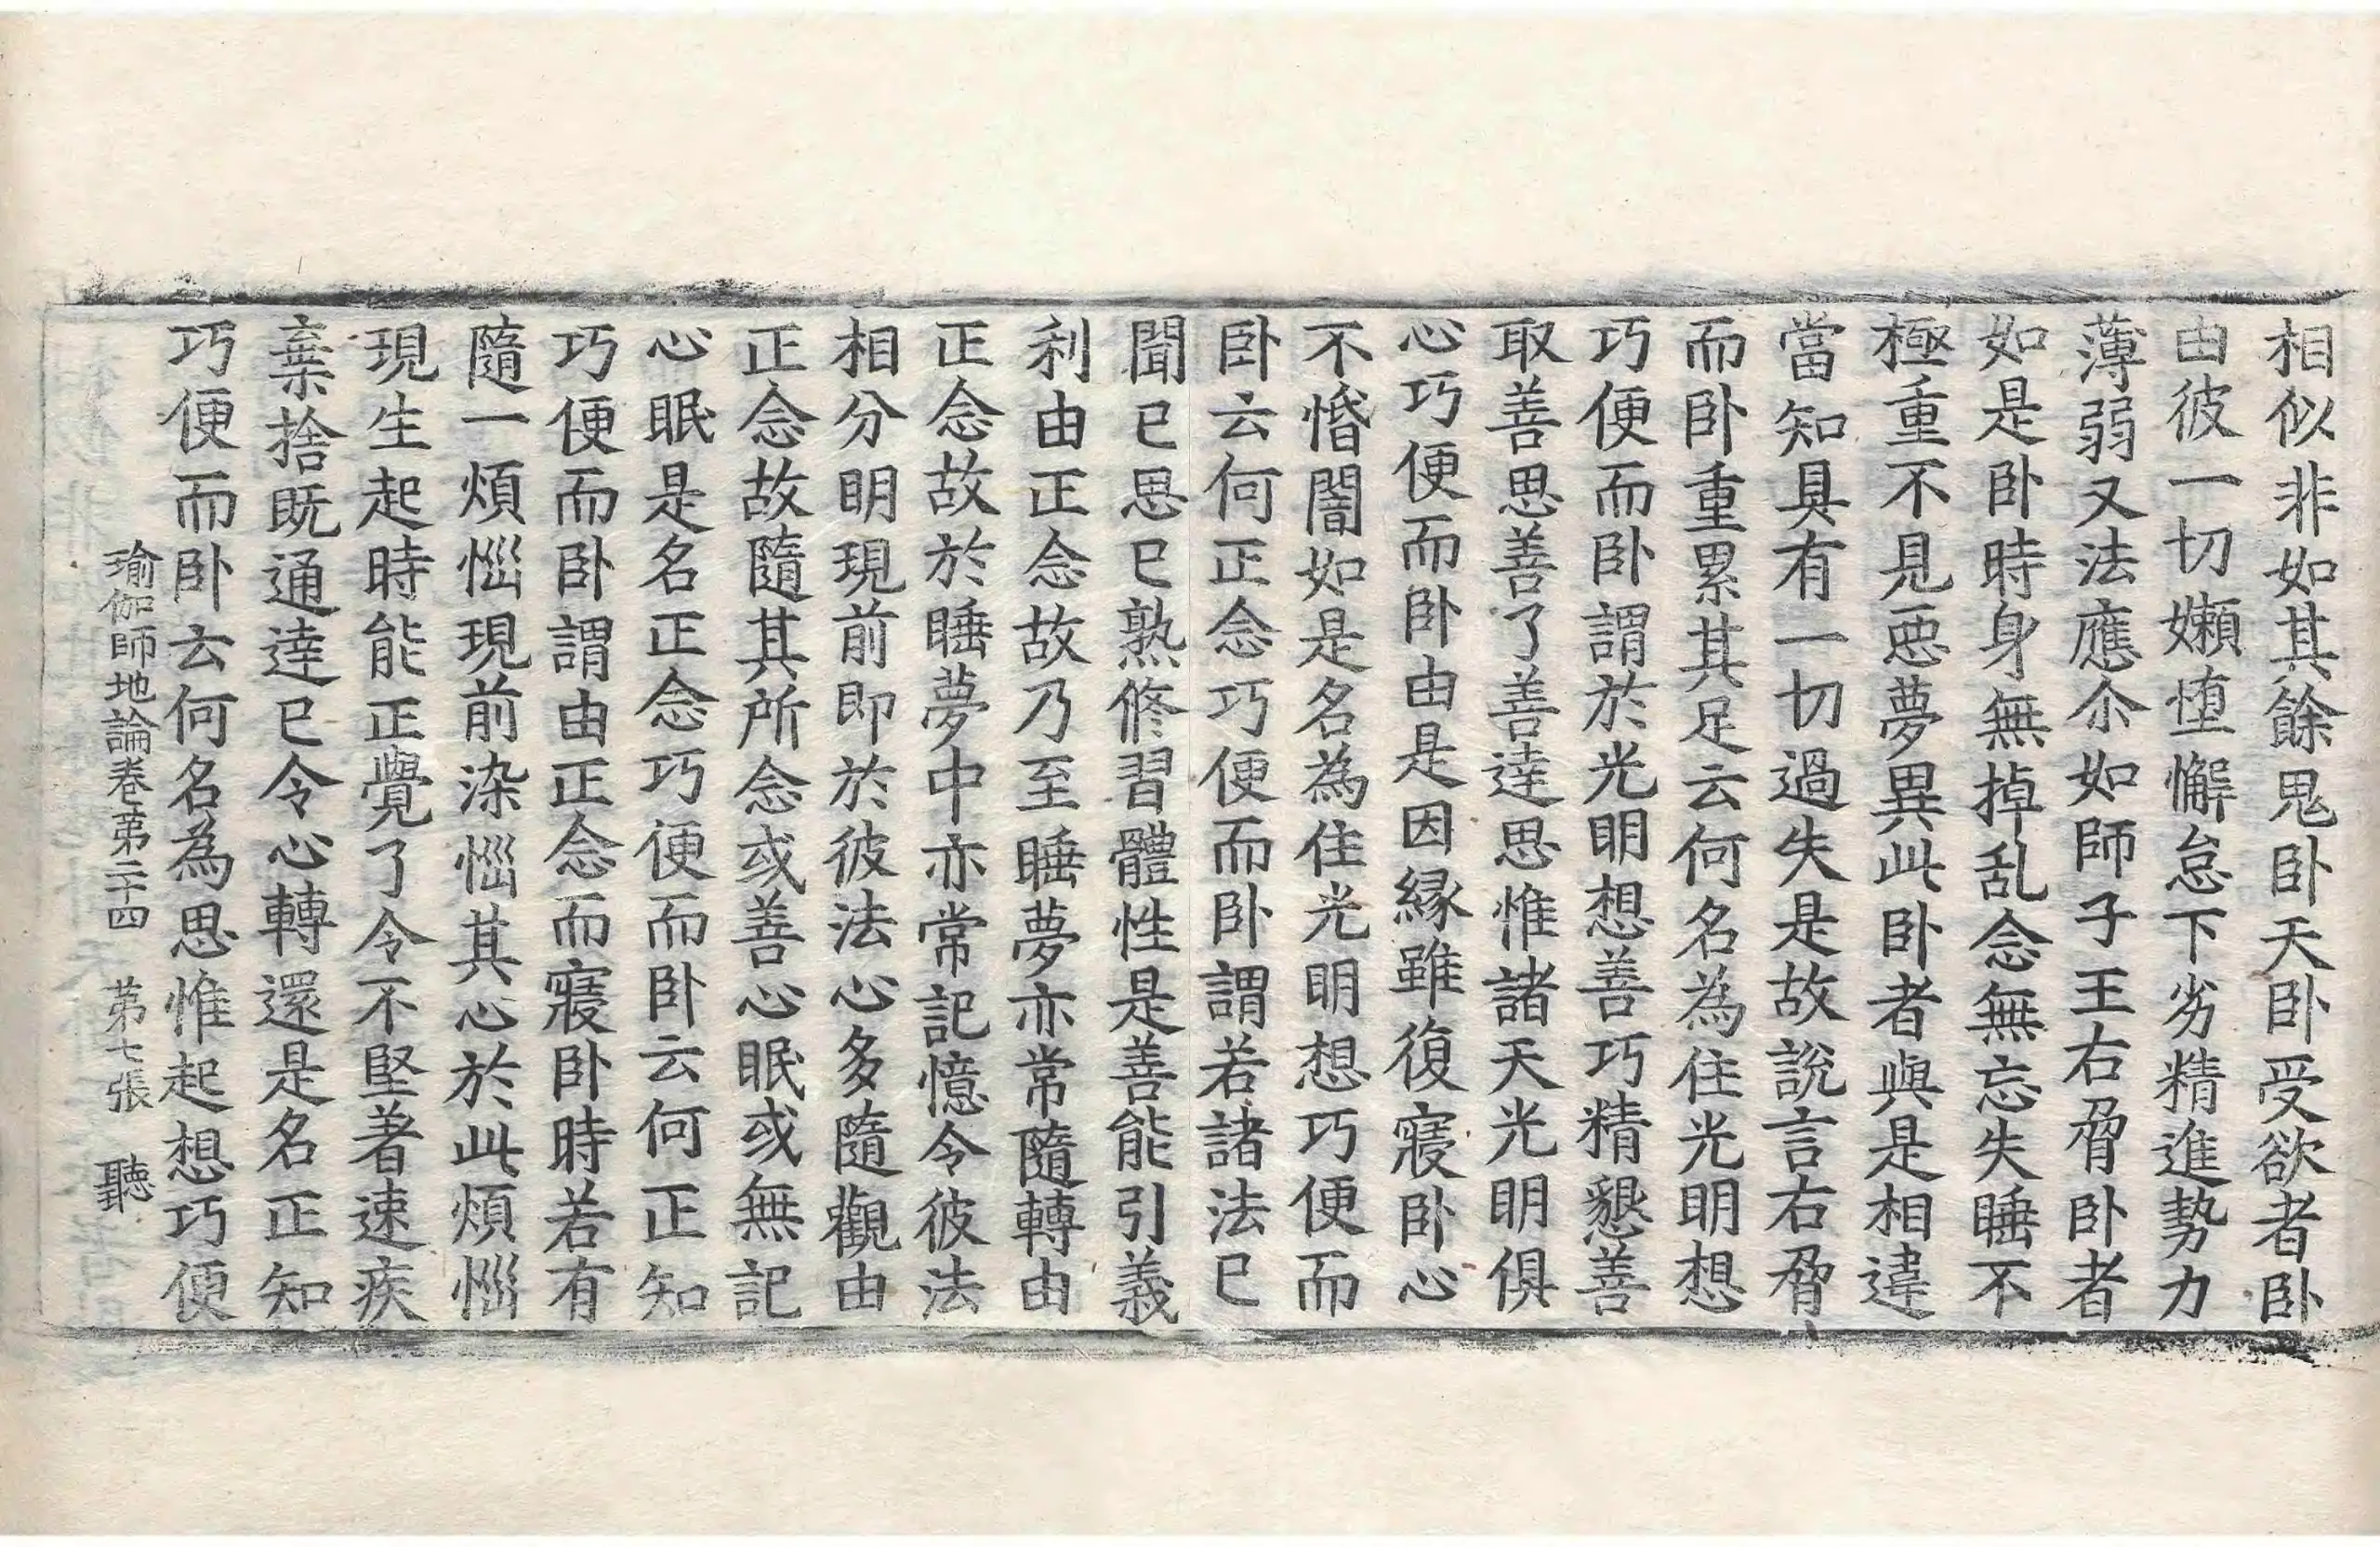 相似非如其餘鬼卧天卧受欲者卧
由彼一切嬾墮懈怠下劣精進勢力
薄弱又法應尒如師子王右脅卧者
如是卧時身無掉乱念無忘失睡不
極重不見惡夢異此卧者與是相違
當知具有一切過失是故說言右脅
而卧重累其足云何名為住光明想
巧便而卧謂於光明想善巧精懇善
取善思善了善達思惟諸天光明俱
心巧便而卧由是因縁雖復寢卧心
不惛闇如是名為住光明想巧便而
卧云何正念巧便而卧謂若諸法已
聞已思已熟修習體性是善能引義
利由正念故乃至睡夢亦常隨轉由
正念故於睡夢中亦常記憶令彼法
相分明現前即於彼法心多隨觀由
正念故隨其所念或善心眠或無記
心眠是名正念巧便而卧云何正知
巧便而卧謂由正念而寢卧時若有
隨一煩惱現前染惱其心於此煩惱
現生起時能正覺了令不堅著速疾
棄捨既通達已令心轉還是名正知
巧便而卧云何名為思惟起想巧便
瑜伽師地論卷第二十四 第七張 聽